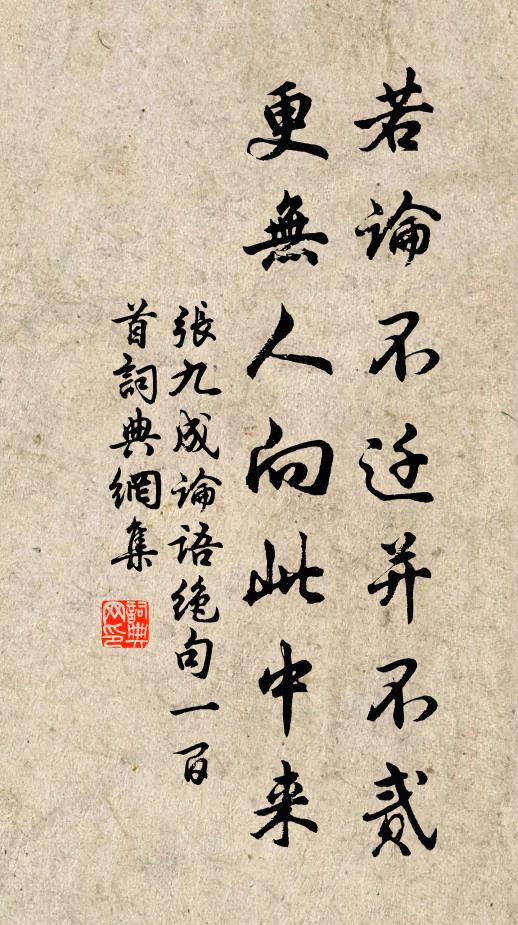 若論不迁并不貳
更無人向此中来
張九成論語絶句一百
首詞典網集
詞典网印